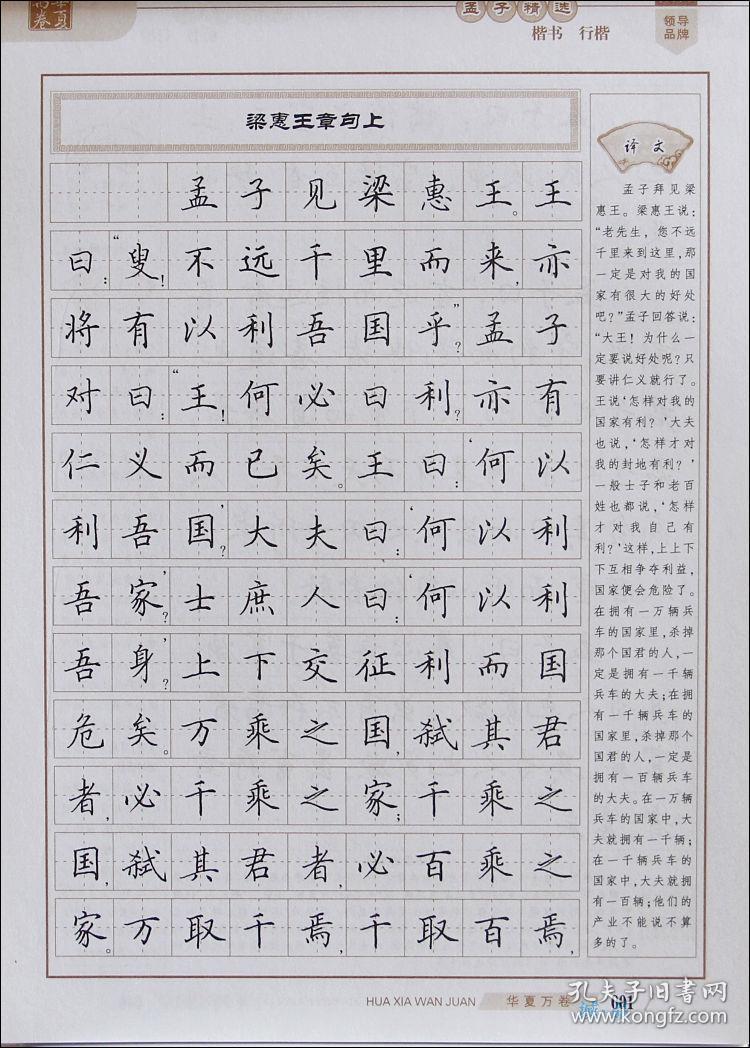 华夏
万卷
孟子精选
楷书 行楷
领导
品牌
梁惠王章句上
孟子见梁惠王。王
曰：“叟！不远千里而来，亦
将有以利吾国乎”？孟子
对曰：“王！何必曰利？亦有
仁义而已矣。王曰：‘何以
利吾国’？大夫曰：‘何以利
吾家’？士庶人曰：‘何以利
吾身’？上下交征利而国
危矣。万乘之国，弑其君
者，必千乘之家；千乘之
国，弑其君者，必百乘之
家。万取千焉，千取百焉，
译文
孟子拜见梁
惠王。梁惠王说：
“老先生，您不远
千里来到这里，那
一定是对我的国
家有很大的好处
吧？”孟子回答说：
“大王！为什么一
定要说好处呢？只
要讲仁义就行了。
王说‘怎样对我的
国家有利？’大夫
也说，‘怎样才对
我的封地有利？’
一般士子和老百
姓也都说，‘怎样
才对我自己有
利？’这样，上上下
下互相争夺利益，
国家便会危险了。
在拥有一万辆兵
车的国家里，杀掉
那个国君的人，一
定是拥有一千辆
兵车的大夫；在拥
有一千辆兵车的
国家里，杀掉那个
国君的人，一定是
拥有一百辆兵车
的大夫。在一万辆
兵车的国家中，大
夫就拥有一千辆；
在一千辆兵车的
国家中，大夫就拥
有一百辆；他们的
产业不能说不算
多的了。
HUA XIA WAN JUAN
华夏万卷
001
孔夫子旧书网
www.kongfz.com